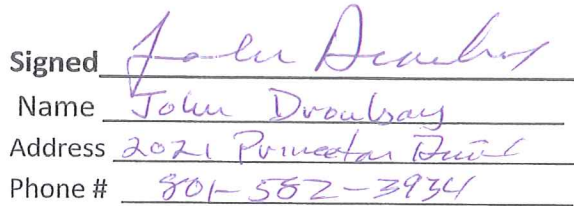 Signed John Droubay
Name John Droubay
Address 2021 Princeton Drive
Phone # 801-582-3934